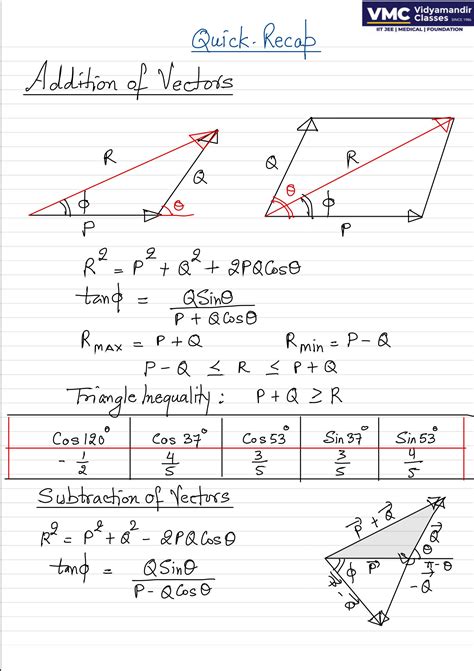 VMC Vidyamandir Classes SINCE 1986
IIT JEE | MEDICAL | FOUNDATION
Quick-Recap
Addition of Vectors
R Q θ ϕ P
Q R θ ϕ P
R² = P² + Q² + 2PQCosθ
tanϕ = QSinθ / P + QCosθ
R_MAX = P + Q R_min = P - Q
P - Q ≤ R ≤ P + Q
Triangle Inequality: P + Q ≥ R
Cos120° Cos 37° Cos 53° Sin 37° Sin 53°
-1/2 4/5 3/5 3/5 4/5
Subtraction of Vectors
R² = P² + Q² - 2PQCosθ
tanϕ = QSinθ / P - QCosθ
P⃗ + Q⃗ Q⃗ θ
ϕ P⃗ π-θ
P⃗ - Q⃗ -Q⃗